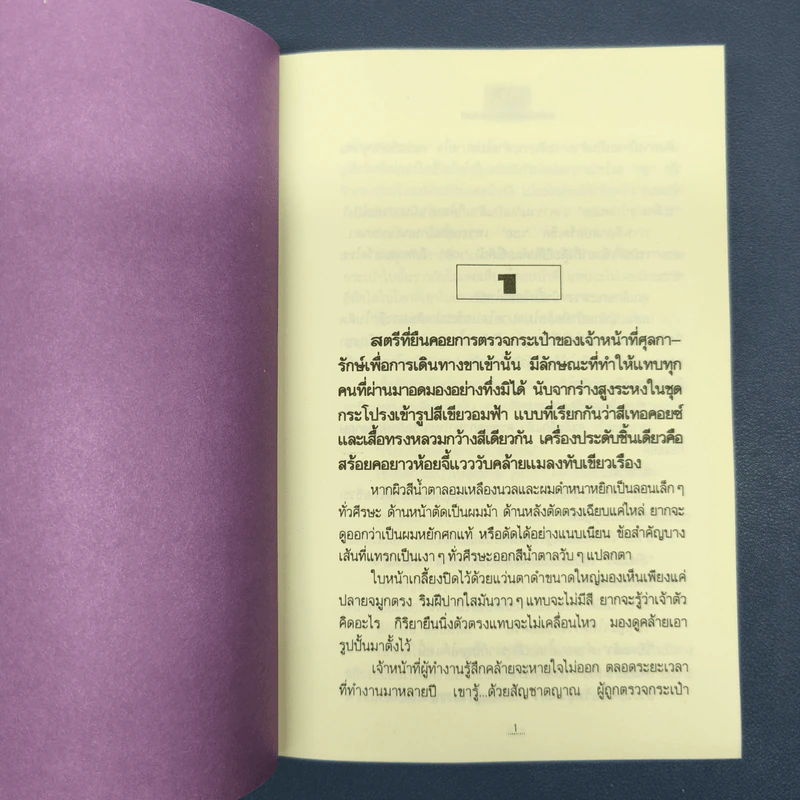 ๑
สตรีที่ยืนคอยการตรวจกระเป๋าของเจ้าหน้าที่ศุลกา–
รักษ์เพื่อการเดินทางขาเข้านั้น มีลักษณะที่ทำให้แทบทุก
คนที่ผ่านมาอดมองอย่างทึ่งมิได้ นับจากร่างสูงระหงในชุด
กระโปรงเข้ารูปสีเขียวอมฟ้า แบบที่เรียกกันว่าสีเทอคอยซ์
และเสื้อทรงหลวมกว้างสีเดียวกัน เครื่องประดับชิ้นเดียวคือ
สร้อยคอยาวห้อยจี้แวววับคล้ายแมลงทับเขียวเรือง
หากผิวสีน้ำตาลอมเหลืองนวลและผมดำหนาหยิกเป็นลอนเล็ก ๆ
ทั่วศีรษะ ด้านหน้าตัดเป็นผมม้า ด้านหลังตัดตรงเฉียบแค่ไหล่ ยากจะ
ดูออกว่าเป็นผมหยักศกแท้ หรือดัดได้อย่างแนบเนียน ข้อสำคัญบาง
เส้นที่แทรกเป็นเงา ๆ ทั่วศีรษะออกสีน้ำตาลวับ ๆ แปลกตา
ใบหน้าเกลี้ยงปิดไว้ด้วยแว่นตาดำขนาดใหญ่มองเห็นเพียงแค่
ปลายจมูกตรง ริมฝีปากใสมันวาว ๆ แทบจะไม่มีสี ยากจะรู้ว่าเจ้าตัว
คิดอะไร กิริยายืนนิ่งตัวตรงแทบจะไม่เคลื่อนไหว มองดูคล้ายเอา
รูปปั้นมาตั้งไว้
เจ้าหน้าที่ผู้ทำงานรู้สึกคล้ายจะหายใจไม่ออก ตลอดระยะเวลา
ที่ทำงานมาหลายปี เขารู้...ด้วยสัญชาตญาณ ผู้ถูกตรวจกระเป๋า
1